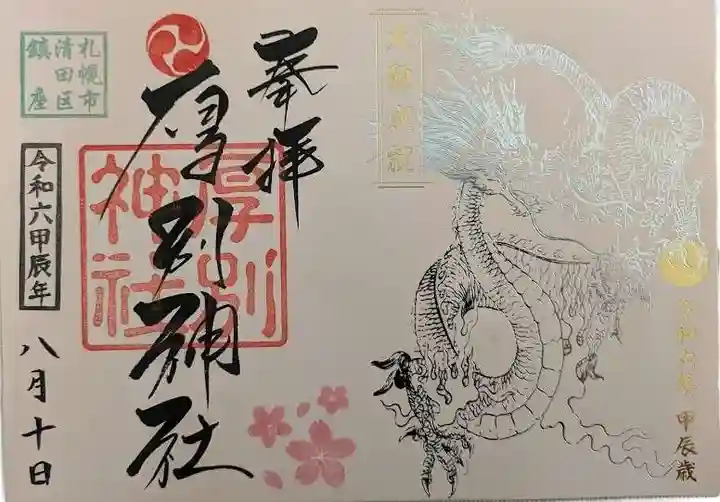 令和六年 甲辰歳
奉拝
厚別神社
厚別
神社
札幌市
清田区
鎮座
令和六甲辰年
八月十日